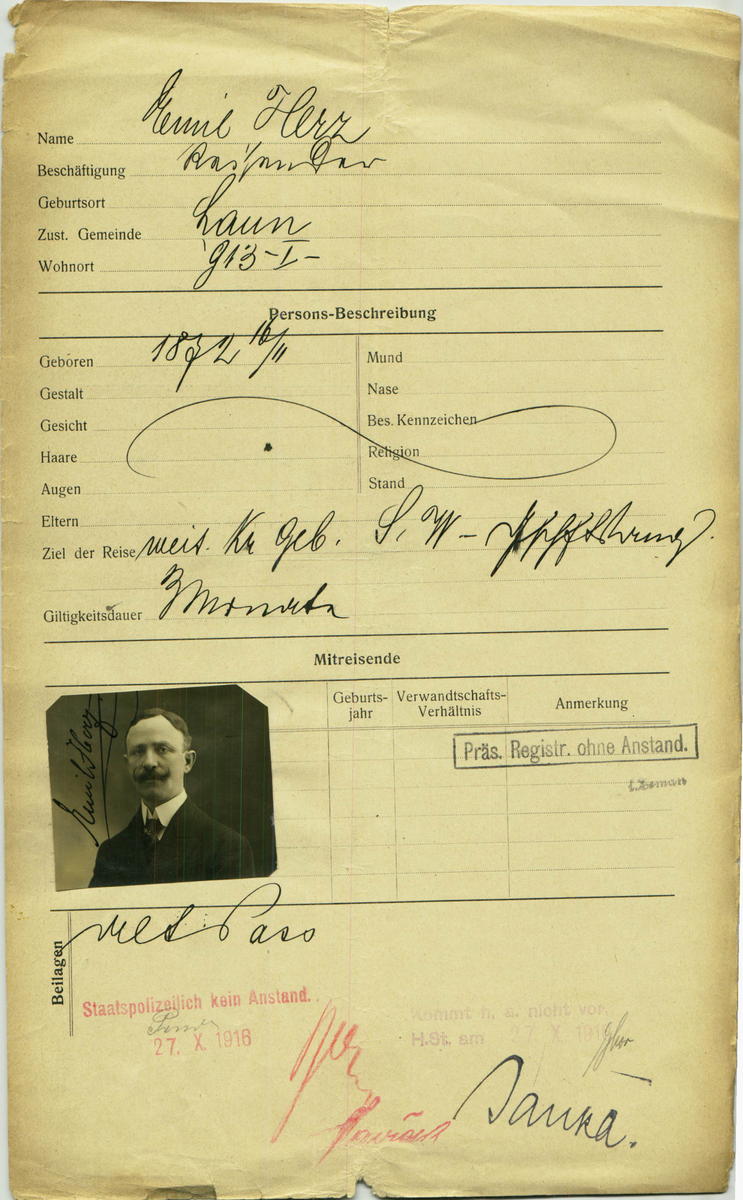 Name Emil Herz
Beschäftigung Reisender
Geburtsort
Zust. Gemeinde Laun
Wohnort 913-I-
Persons-Beschreibung
Geboren 1872 16/11
Gestalt
Gesicht
Haare
Augen
Eltern
Mund
Nase
Bes. Kennzeichen
Religion
Stand
Ziel der Reise weit. Kr Geb. S. W -
Giltigkeitsdauer 3 Monate
Mitreisende
Geburts-
jahr
Verwandtschafts-
Verhältnis
Anmerkung
Emil Herz
Präs. Registr. ohne Anstand.
Beilagen
Pass
Staatspolizeilich kein Anstand.
27. X. 1916
Kommt h. a. nicht vor.
H.St. am 27. X. 1916